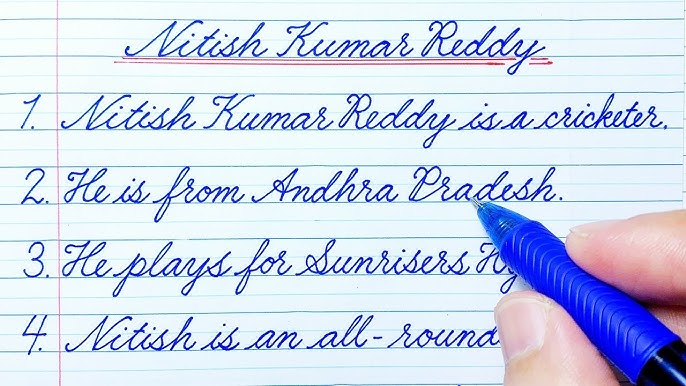 Nitish Kumar Reddy
1. Nitish Kumar Reddy is a cricketer.
2. He is from Andhra Pradesh.
3. He plays for Sunrisers
4. Nitish is an all-round